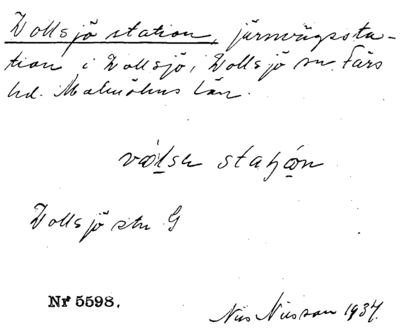 Vollsjö station, järnvägssta-
tion i Vollsjö, Vollsjö sn. Färs
hd. Malmöhus län.
stn G
Vollsjö stn G
Nr 5598.
Nils Nilsson 1937.